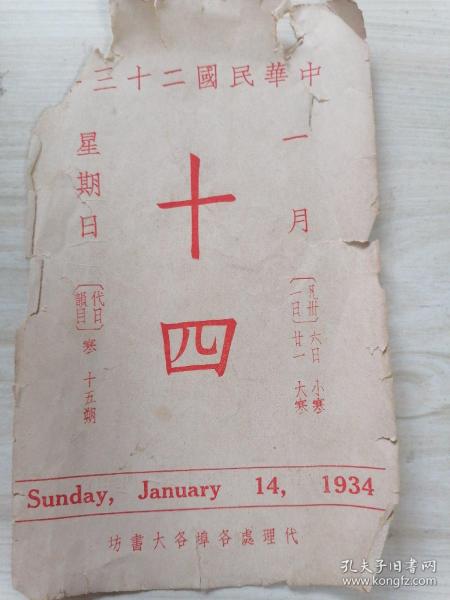 中華民國二十三
一月
〔凡卅一日〕
六日 小寒
廿一 大寒
十四
星期日
〔代日韻目〕
寒 十五翰
Sunday, January 14, 1934
代理處各埠各大書坊
孔夫子旧书网
www.kongfz.com